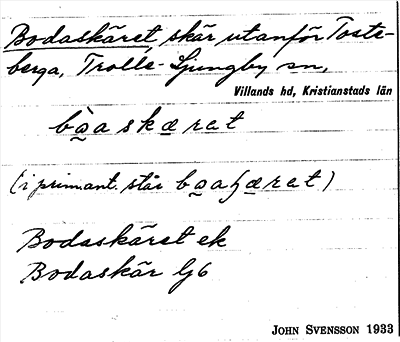 Bodaskäret, skär utanför Toste-
berga, Trolle-Ljungby sn,
Villands hd, Kristianstads län
bo̠a skæ̠rat
(i primant. står bo̠aɧæ̠rat)
Bodaskäret ek
Bodaskär Gj6
JOHN SVENSSON 1933